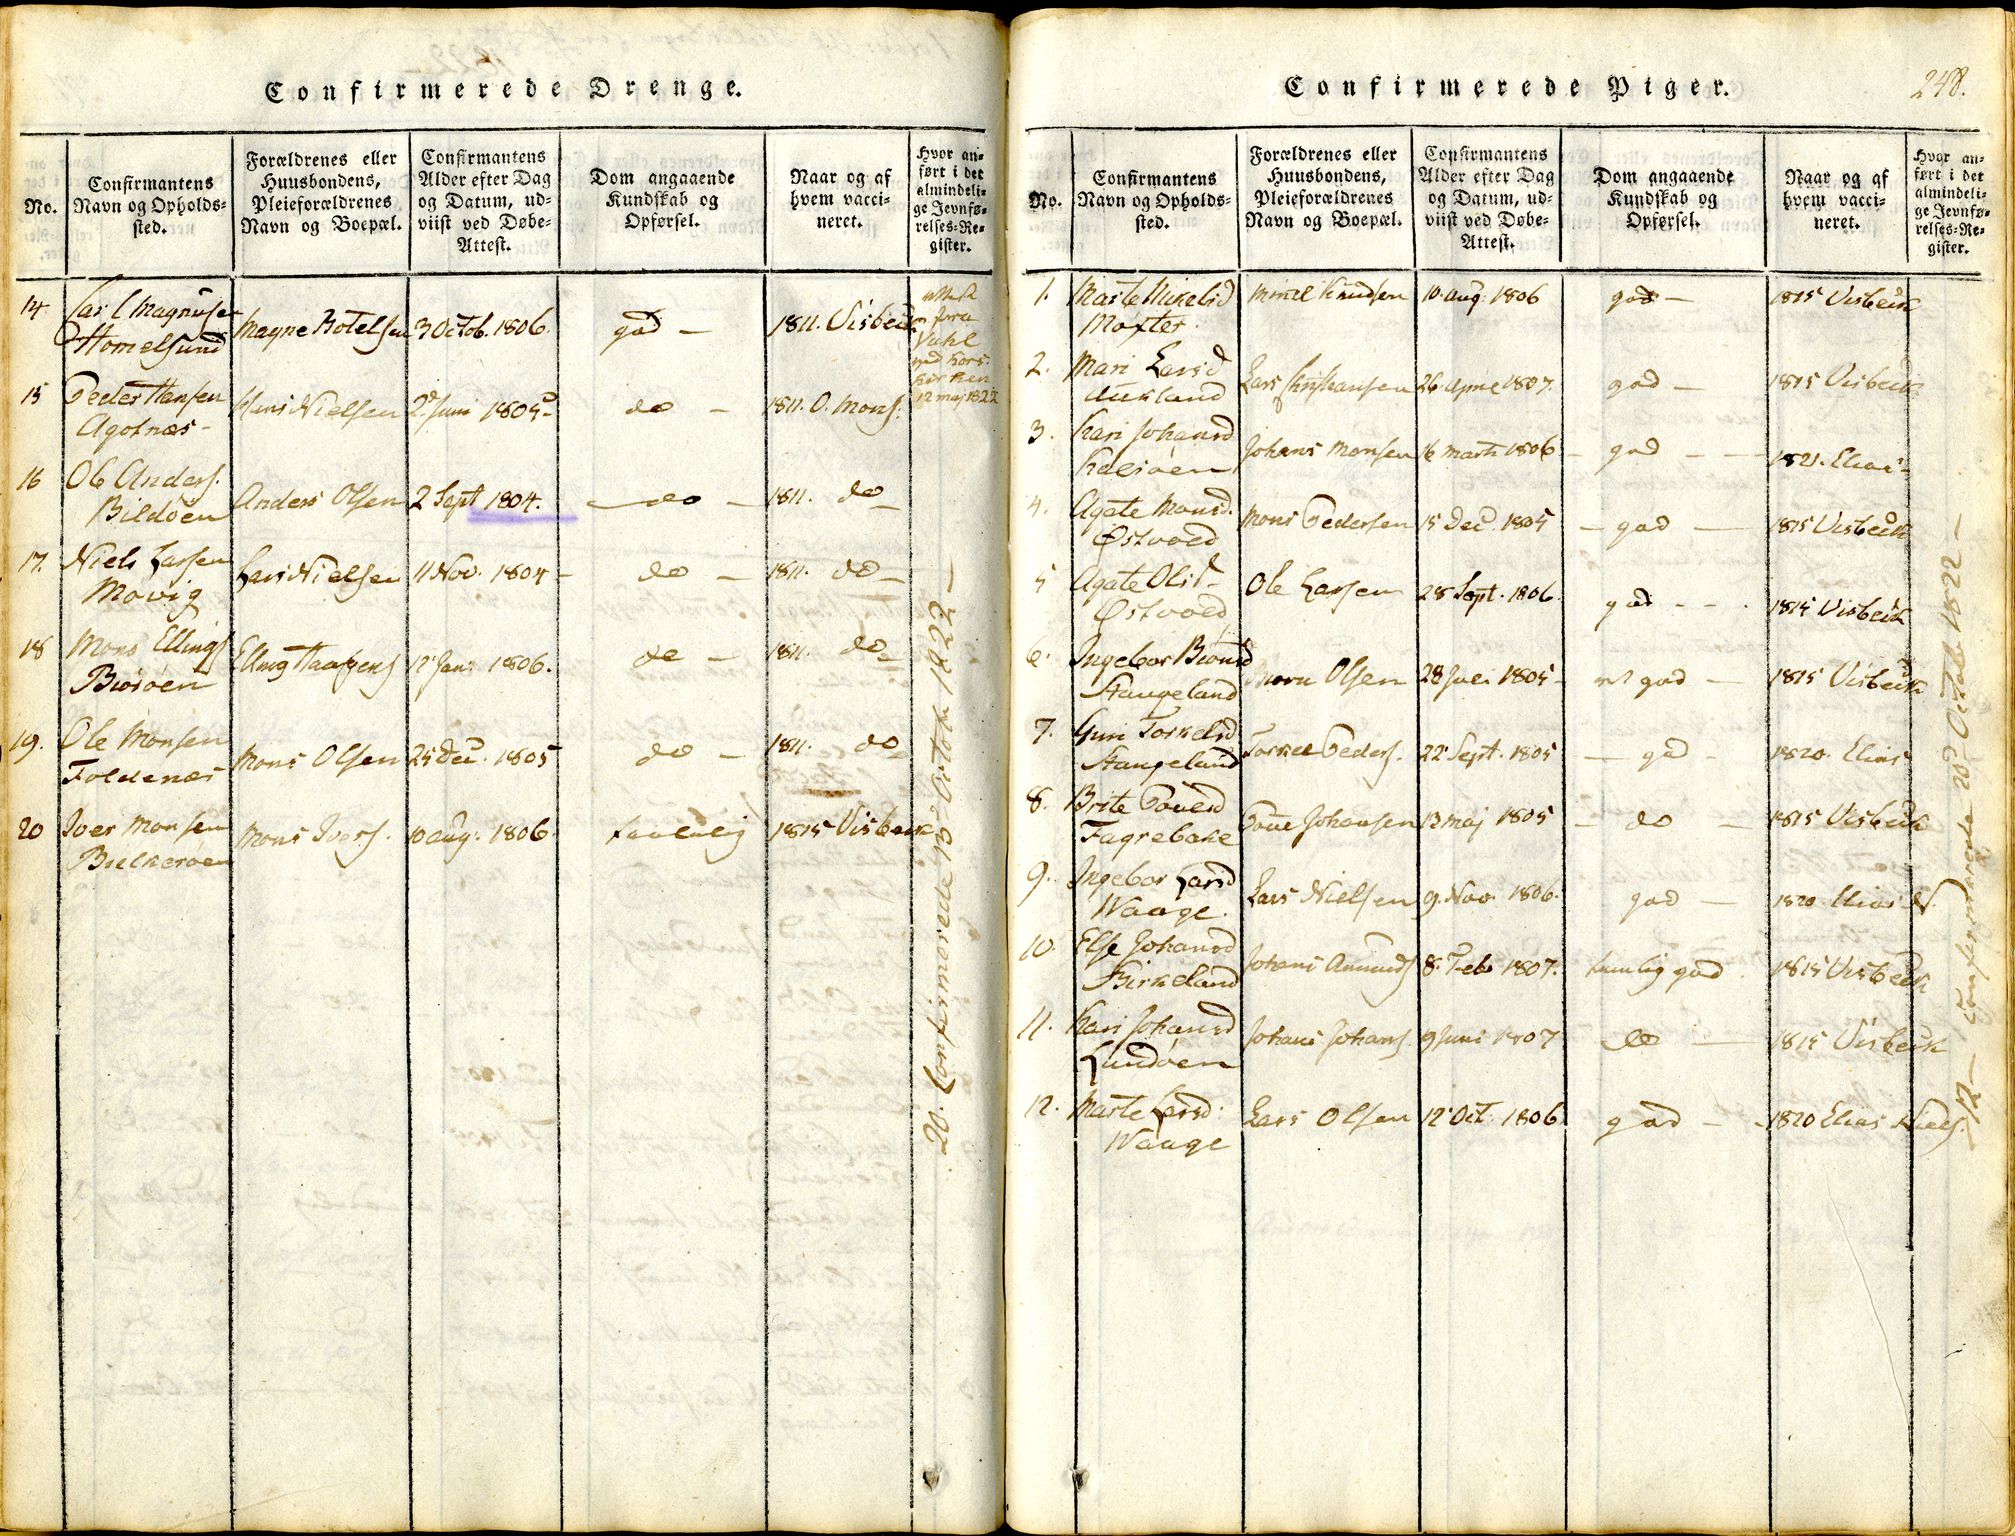 Confirmerede Drenge.
No.
Confirmantens
Navn og Opholds-
sted.
Forældrenes eller
Huusbondens,
Pleieforældrenes
Navn og Boepæl.
Confirmantens
Alder efter Dag
og Datum, ud-
viist ved Døbe-
Attest.
Dom angaaende
Kundskab og
Opførsel.
Naar og af
hvem vacci-
neret.
Hvor an-
ført i det
almindeli-
ge Jevnfø-
relses-Re-
gister.
14 Carl Magnusen
Homelsund Magne Botelsen 3 Octob. 1806. god — 1811. Visbeck
fra
Dahl
ved Kors-
kirken
12 maj 1822
15 Peder Hansen
Agotnæs - Hans Nielsen 2 Juni 1805 - do — 1811. O. Mons.
16 Ole Anders.
Bildøen Anders Olsen 2 Sept 1804. do — 1811. do —
17. Niels Larsen
Movig Lars Nielsen 11 Nov. 1804 - do — 1811. do —
18 Mons Ellings
Biorøen Elling Haagens 12 Jan: 1806. do — 1811. do —
19. Ole Monsen
Foldenæs Mons Olsen 25 Dec. 1805 do — 1811. do
20 Iver Monsen
Bielkerøen Mons Ivers. 10 aug: 1806. taalelig 1815 Visbeck
20. Confirmerede 13 Octob. 1822 —
Confirmerede Piger.
248.
No.
Confirmantens
Navn og Opholds-
sted.
Forældrenes eller
Huusbondens,
Pleieforældrenes
Navn og Boepæl.
Confirmantens
Alder efter Dag
og Datum, ud-
viist ved Døbe-
Attest.
Dom angaaende
Kundskab og
Opførsel.
Naar og af
hvem vacci-
neret.
Hvor an-
ført i det
almindeli-
ge Jevnfø-
relses-Re-
gister.
1. Marte Mikelsd
Møxter. Knudsen 10. aug: 1806 god — 1815 Visbeck
2. Mari Larsd
Aukland Lars Christiansen 26 April 1807. god — 1815 Visbeck
3. Kari Johansd
Kalsøen Johans Monsen 16 Marti 1806 - god — 1821. Elias
4. Agate Monsd.
Østvold Mons Pedersen 15 Dec. 1805 - god — 1815 Visbeck
5 Agate Olsd-
Østvold Ole Larsen 28 Sept. 1806. god - - . 1815 Visbeck
6. Ingebor Biornsd
Stangeland Biorn Olsen 28 Juli 1805 - god — 1815 Visbeck
7. Guri Torkelsd
Stangeland Torkel Peders. 22 Sept. 1805 — gd - 1820. Elias
8. Brite Povelsd
Fagrebake Povel Johansen 13 maj 1805 - do — 1815 Visbeck
9. Ingebor Larsd
Waage. Lars Nielsen 9. Nov. 1806. god — 1820 Elias N.
10. Else Johansd
Birkeland Johans Amunds 8. Feb 1807. temlig god. 1815 Visbeck
11. Kari Johansd
Lundøen Johans Johans. 9 Juni 1807 do — 1815 Visbeck
12. Marte Larsd.
Waage Lars Olsen 12 Oct. 1806. god — 1820 Elias Niels.
12 — Confirmerede 20 Octob 1822 —